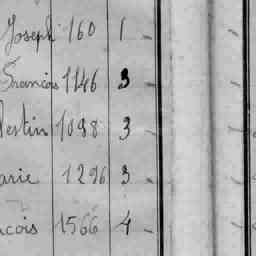 Joseph 160 1
François 1146 3
lestin 1098 3
arie 1296 3
cois 1566 4